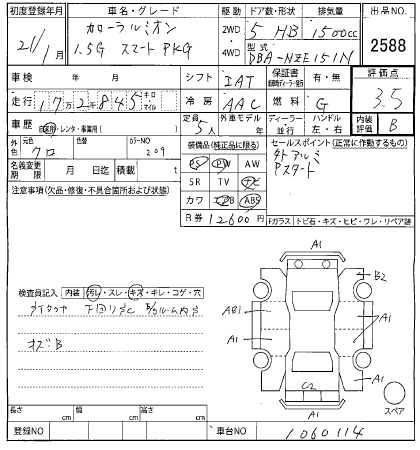 初度登録年月 車名・グレード 駆動 ドア数・形状 排気量 出品NO.
21/1月 カローラルミオン 1.5G スマートPKG 2WD・4WD 5 HB 1500cc 2588
型式 DBA-NZE151N
車検 年 月 シフト IAT 保証書 有・無 評価点 3.5
走行 172845 キロ マイル 冷房 AAC 燃料 G
車歴 自家用・レンタ・事業用( ) 定員 5人 外車モデル 年 ディーラー・並行 ハンドル 左・右 内装評価 B
外色 元色 クロ 色替 カラーNO 209 装備品(純正品に限る) セールスポイント(正常に作動するもの)
PS PW AW 外アルミ
名義変更期限 月 日迄 積載 t SR TV ナビ Pスタート
注意事項(欠品・修復・不具合箇所および状態) カワ エアB ABS
R券 12600円 Fガラス トビ石・キズ・ヒビ・ワレ・リペア跡
A1
B2
検査員記入 内装 汚レ・スレ・キズ・キレ・コゲ・穴
AB1
下回りサビ
A1 A1
オズB
C2 A1
A1 スペア
長さ cm 幅 cm 高さ cm
登録NO 車台NO 1060114